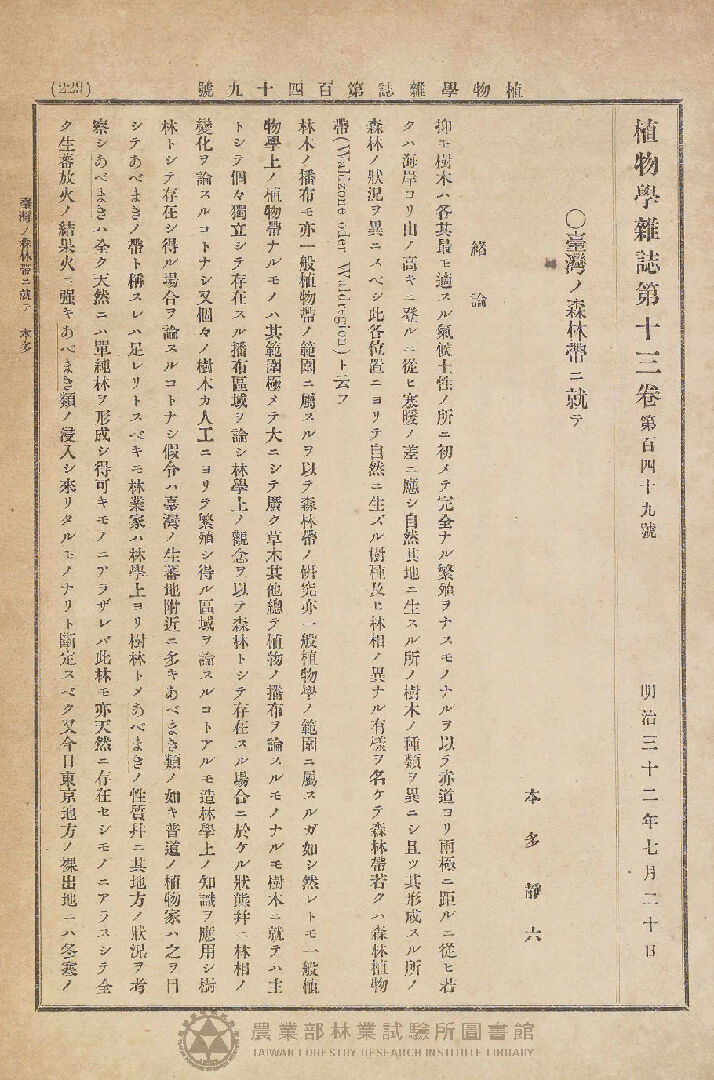 植物學雜誌第百四十九號
(229)
植物學雜誌第十三卷 第百四十九號 明治三十二年七月二十日
〇臺灣ノ森林帶ニ就テ
本多靜六
緒論
抑モ樹木ハ各其最モ適スル氣候土性ノ所ニ初メテ完全ナル繁殖ヲナスモノナルヲ以テ赤道ヨリ兩極ニ距ルニ從ヒ若
クハ海岸ヨリ山ノ高キニ登ルニ從ヒ寒暖ノ差ニ應シ自然其地ニ生スル所ノ樹木ノ種類ヲ異ニシ且ツ其形成スル所ノ
森林ノ狀況ヲ異ニスベシ此各位置ニヨリテ自然ニ生ズル樹種及ヒ林相ノ異ナル有樣ヲ名ケテ森林帶若クハ森林植物
帶(Waldzone oder Waldregion)ト云フ
林木ノ播布モ亦一般植物帶ノ範圍ニ屬スルヲ以テ森林帶ノ硏究亦一般植物學ノ範圍ニ屬スルガ如シ然レトモ一般植
物學上ノ植物帶ナルモノハ其範圍極メテ大ニシテ廣ク草木其他總テ植物ノ播布ヲ論スルモノナルモ樹木ニ就テハ主
トシテ個々獨立シテ存在スル播布區域ヲ論シ林學上ノ觀念ヲ以テ森林トシテ存在スル場合ニ於ケル狀態幷ニ林相ノ
變化ヲ論スルコトナシ又個々ノ樹木カ人工ニヨリテ繁殖シ得ル區域ヲ論スルコトアルモ造林學上ノ知識ヲ應用シ樹
林トシテ存在シ得ル場合ヲ論スルコトナシ假令ハ臺灣ノ生蕃地附近ニ多キあべまき類ノ如キ普通ノ植物家ハ之ヲ目
シテあべまきノ帶ト稱スレハ足レリトスベキモ林業家ハ林學上ヨリ樹林トメあべまきノ性質幷ニ其地方ノ狀況ヲ考
察シあべまきハ全ク天然ニハ單純林ヲ形成シ得可キモノニアラザレバ此林モ亦天然ニ存在セシモノニアラスシテ全
ク生蕃放火ノ結果火ニ强キあべまき類ノ浸入シ來リタルモノナリト斷定スベク又今日東京地方ノ裸出地ニハ冬寒ノ
臺灣ノ森林帶ニ就テ 本多
農業部林業試驗所圖書館
TAIWAN FORESTRY RESEARCH INSTITUTE LIBRARY